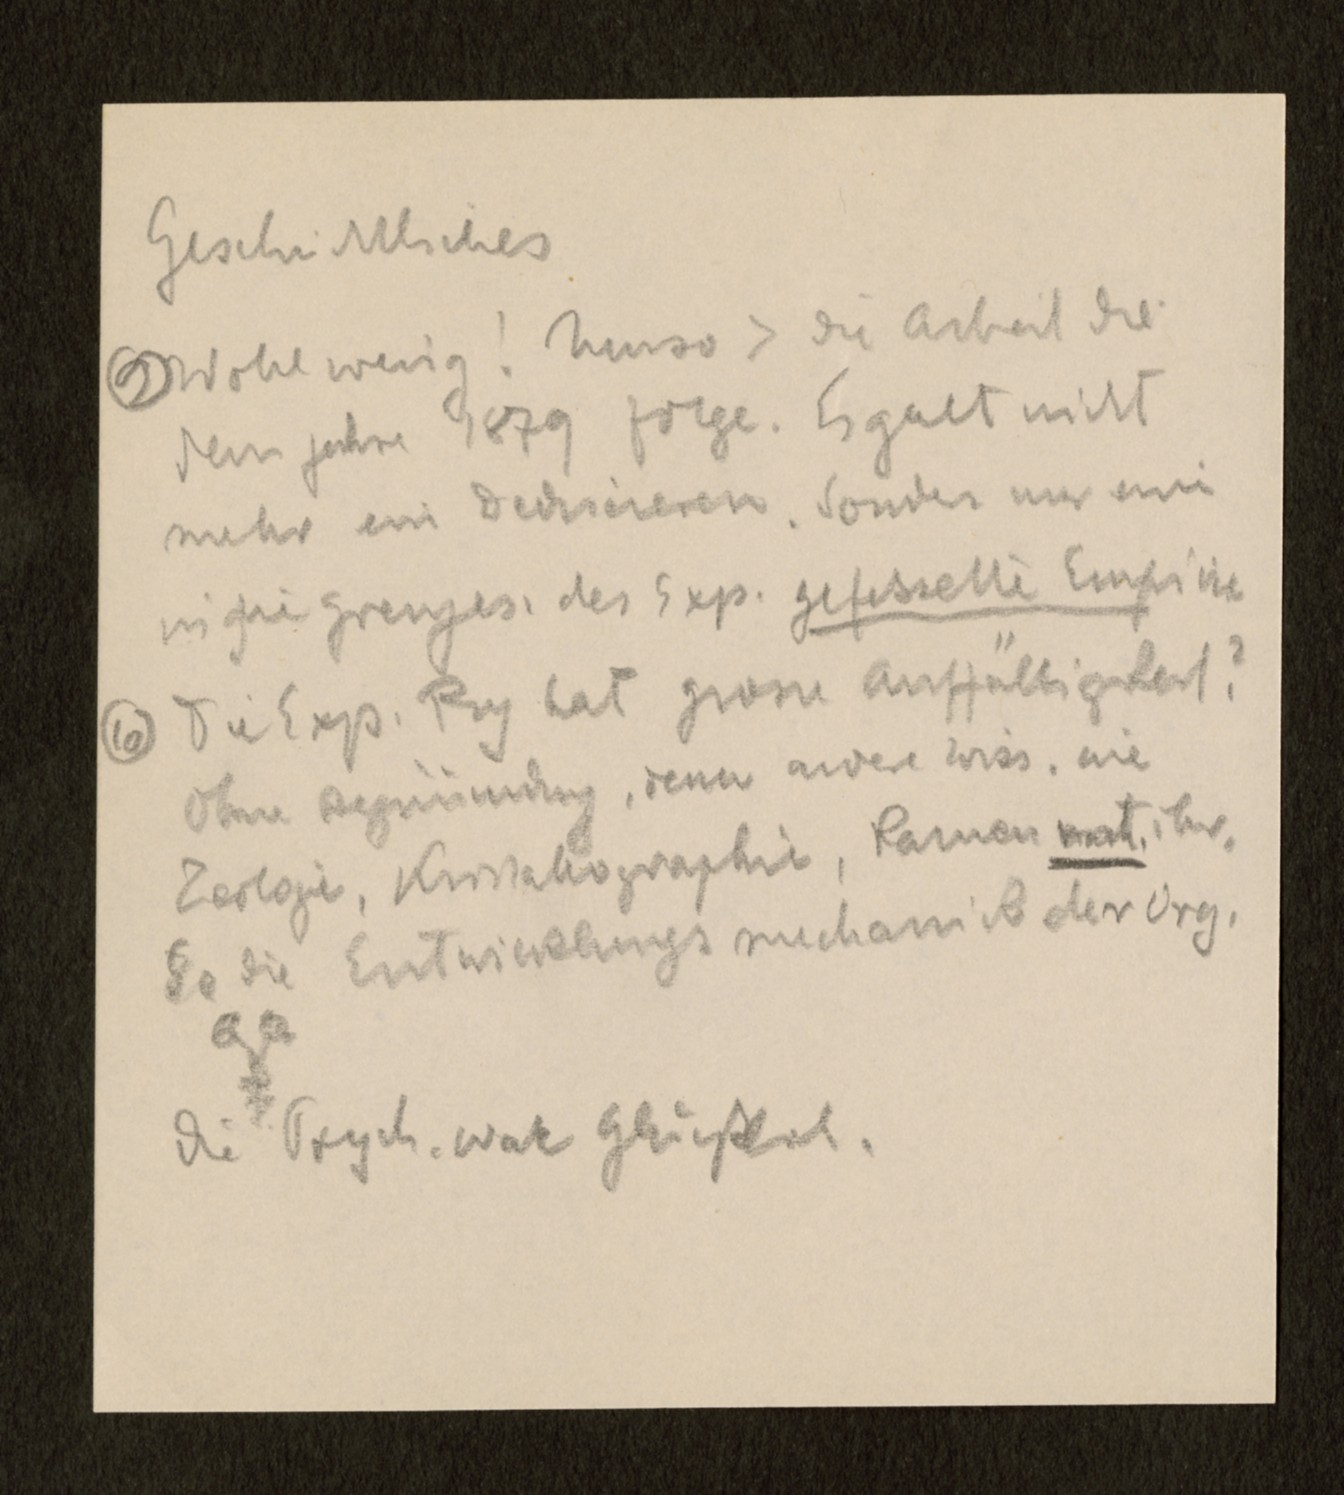 Geschichtliches
Wohl wenig! Umso > die Arbeit die
dem Jahre 1879 folge. Es galt nicht
mehr ein Deducieren. Sonder nur eine
in die Grenzes. des Exp. gefesselte Empirie
⑥ Die Exp. Psy hat grosse Auffälligkeit?
Ohne Begründung, denn andere Wiss. wie
Zoologie, Kristallographie, kamen nat. ihr.
So die Entwicklungsmechanik der Org.
Die Psych. war